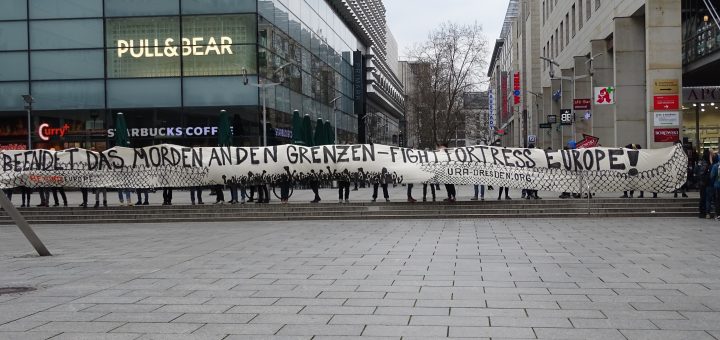 PULL&BEAR
Curry
STARBUCKS COFFEE
BEENDET DAS MORDEN AN DEN GRENZEN - FIGHT FORTRESS EUROPE!
URA-DRESDEN.ORG
EUROPE